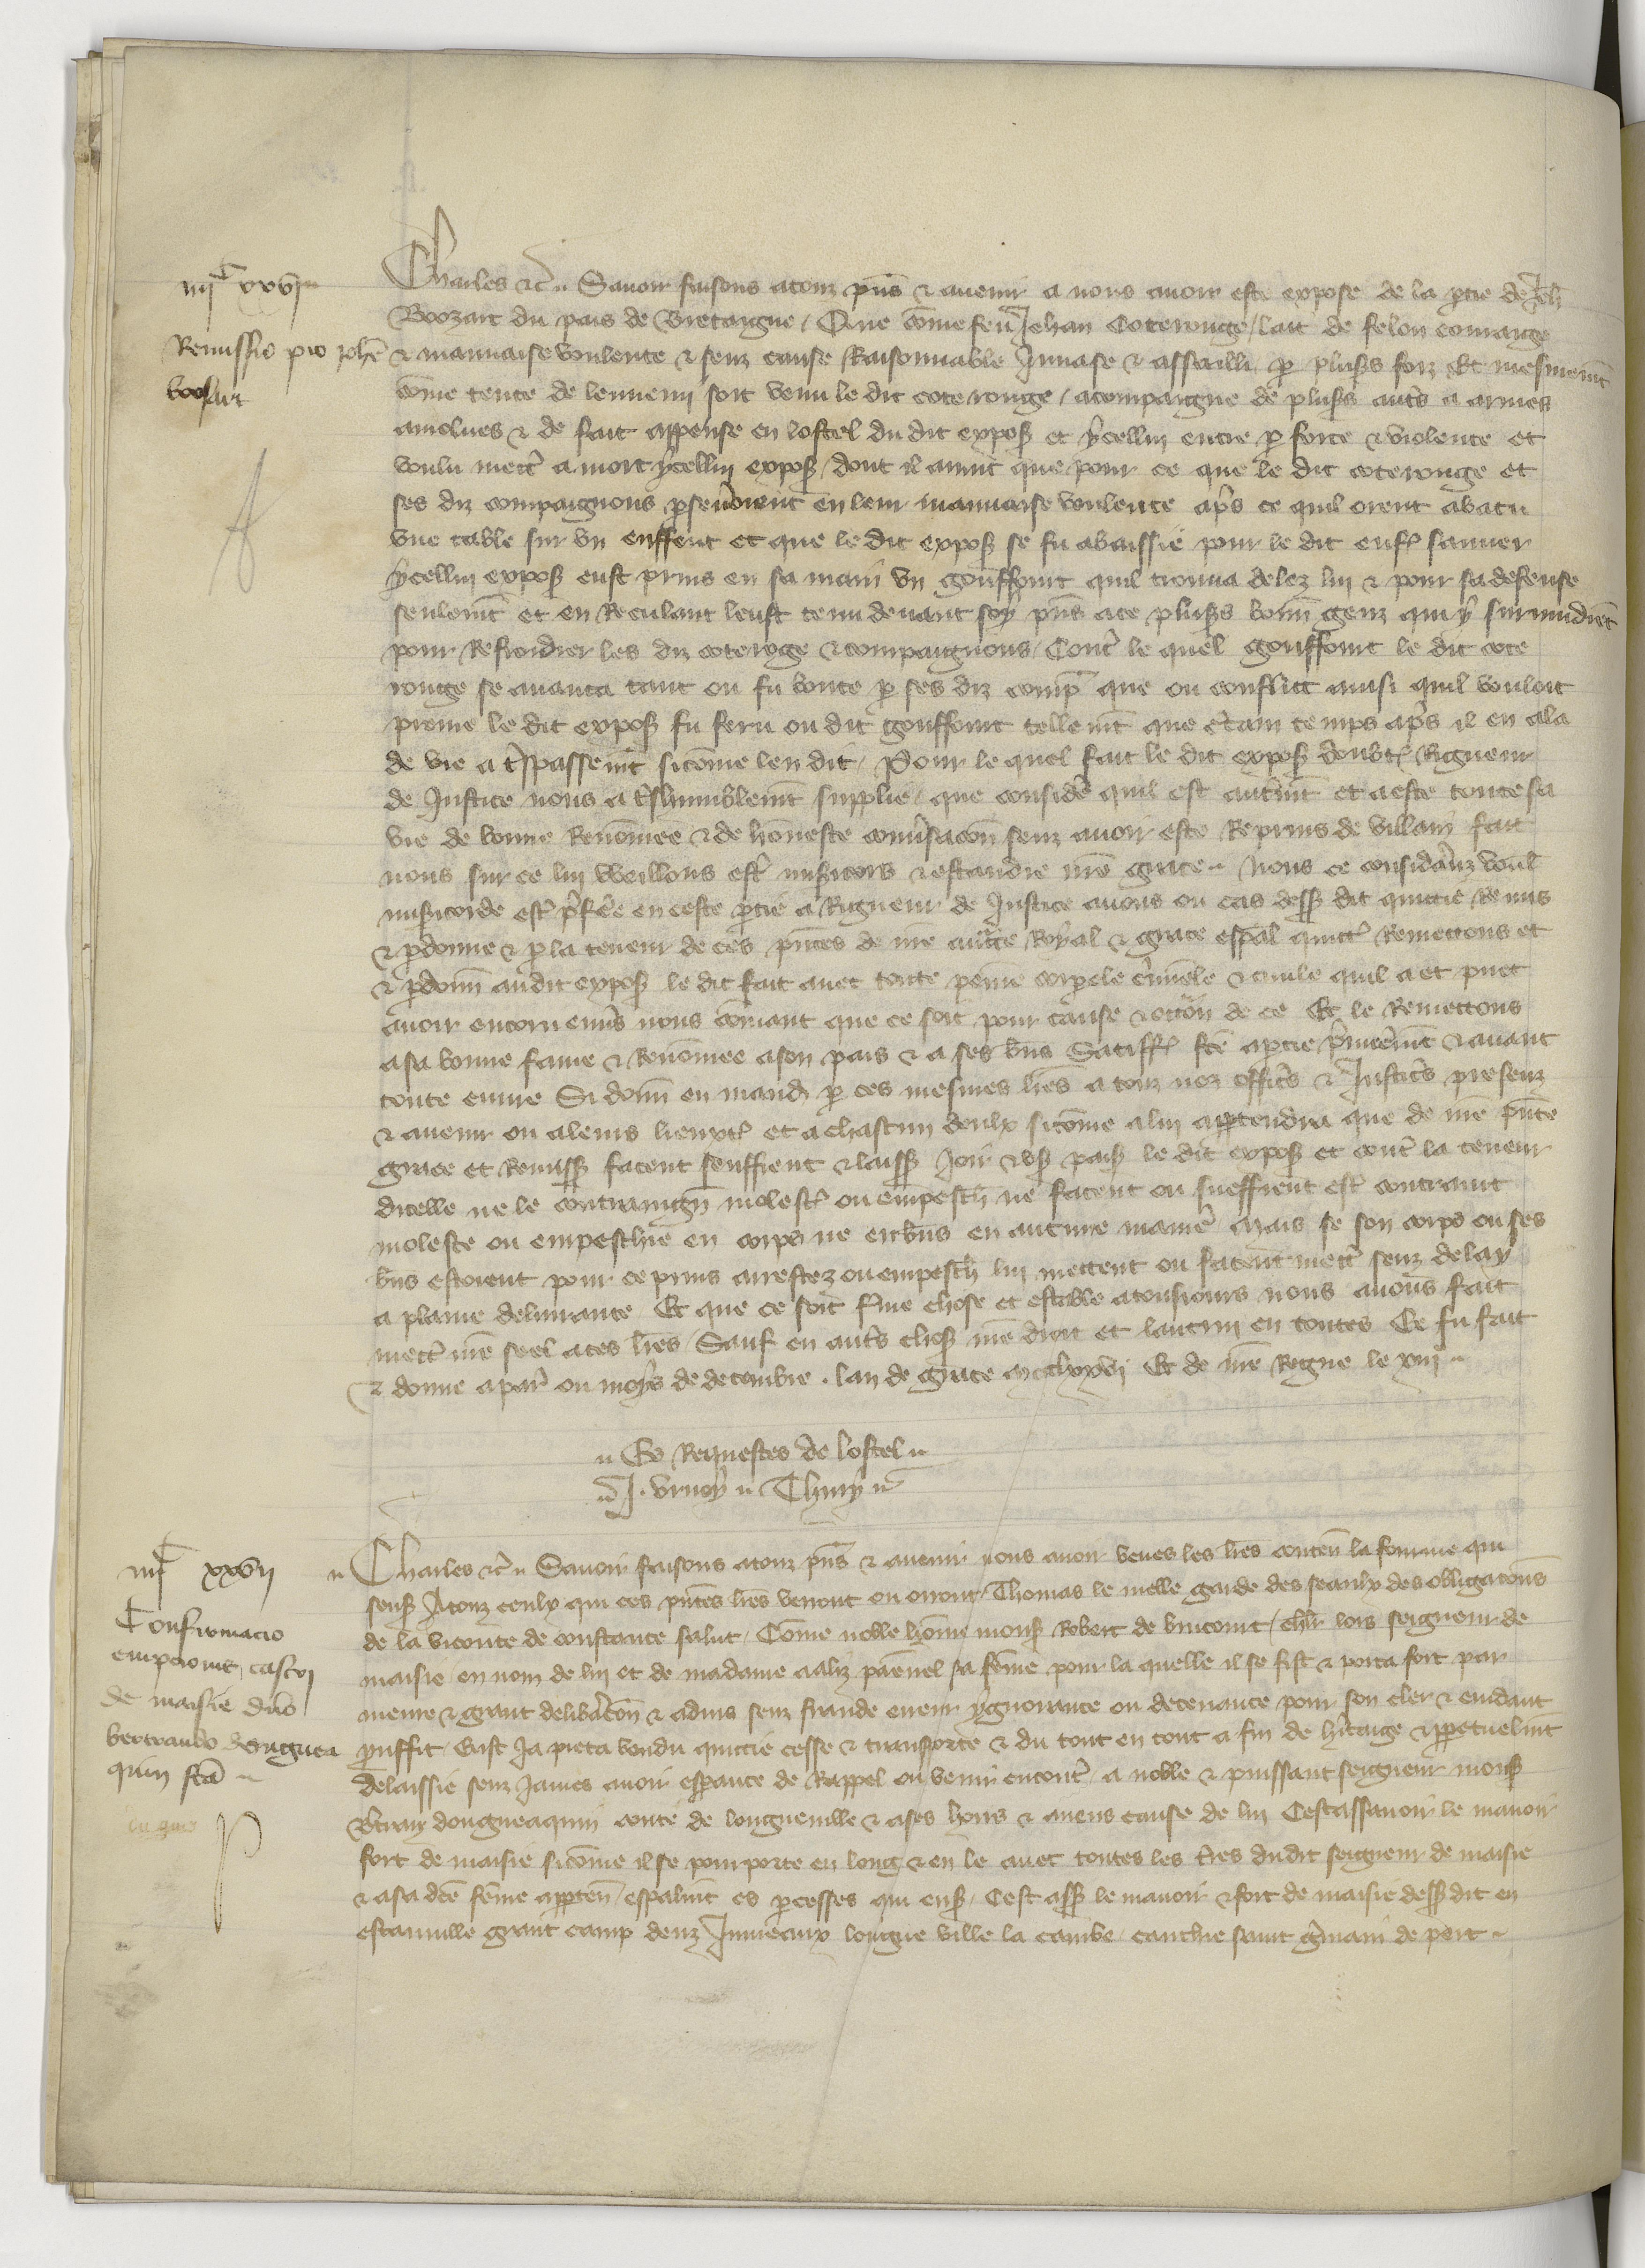 iiijc xxvj
Remissio pro Johē
boosart
Charles etc. Savoir faisons a touz p̄ns & avenir a nous avoir este expose de la p̱tie de Jeh
Boozart du pais de Bretaigne / Que cōme feu Jehan Coterouge / lait de felon courage
& mauvaise voulente & senz cause Raisonnable Invase & assailli p̱ plus̱s foiz Et mesmem̄t
cōme tente de lennemi soit venu le dit coterouge / acompaigne de plus̱s aut̄s a armes
amolues & de fait appense en lostel du dit expos̱ et ycellui entre p̱ force & violence et
voulu mett̄ a mort ycellui expos̱ / dont il avint que pour ce que le dit coterouge et
ses diz compaignons p̱sev̄oient en leur mauvaise voulente ap̄s ce quil orent abatu
une table sur un enffent et que le dit expos̱ se fu abaissie pour le dit enf̄ sauver
ycellui expos̱ eust prins en sa main un gouffoint quil trouva delez lui & pour sa defense
seulem̄t et en Reculant leust tenu devant soy p̄ns a ce plus̱s bonn̄ genz qui y survindrēt
pour Refroidier les diz coteroge & compaignons / Cont̄ le quel gouffoint le dit cote
rouge se avanca tant ou fu boute p̱ ses diz comp̄ que ou conflict ainsi quil vouloit
p̱rene le dit expos̱ fu feru ou dit gouffoint tellem̄t que c̄tain temps ap̄s il en ala
de vie a t̄spassem̄t sicōme len dit / Pour le quel fait le dit expos̱ doubt̄ Rigueur
de Justice nous a t̄shumblem̄t supplie / que consid̄e quil est autrem̄t et a este toute sa
vie de bonne Renōmee & de hōneste conv̄sacōn senz avoir este Reprins de villain fait
nous sur ce lui weillons est̄ mis̱icors & estandre nr̄e grace Nous ce considerāz voul̄
mis̱icorde est̄ p̄fēe en ceste p̱tie a Rigueur de Justice avons ou cas dess̱ dit quittie Remis
& p̱donne & p̱ la teneur de ces p̄ntes de nr̄e auct̄e Royal & grace esp̄al quitt̄ Remettons et
& p̱donn̄ audit expos̱ le dit fait avec toute peine corp̱ele c̄minele & civile quil a et puet
avoir encoru env̄s nous cōmant que ce soit pour cause & occōn de ce Et le Remettons
a sa bonne fame & Renōmee a son pais & a ses bn̄s Satiff̄ fc̄e a p̱tie p̄mierem̄t & avant
toute euvre Si donn̄ en mand̄ p̱ ces mesmes lr̄es a touz noz offic̄s & Justic̄s presenz
& avenir ou a leurs lieuxt̄ et a chascun deulx sicōme a lui app̱tendra que de nr̄e p̄nte
grace et Remiss̱ facent seuffrent & laiss̱ Joir & us̱ pais̱ le dit expos̱ et cont̄ la teneur
dicelle ne le contraingn̄ molest̄ ou empesch̄ ne facent ou sueffrent est̄ contraint
moleste ou empeschie en corps ne en bn̄s en aucune manier̄ / Mais se son corps ou ses
bn̄s estoient pour ce prins arrestez ou empesch̄ lui mettent ou facent mett̄ senz delay
a plaine delivrance Et que ce soit f̄me chose et estable a tousiours nous avons fait
mett̄ nr̄e seel a ces lr̄es / Sauf en aut̄s chos̱ nr̄e droit et lautrui en toutes Ce fu fait
& donne a par̄ ou moys de decembre . lan de grace mccclxxvj Et de nr̄e Regne le xiij
Es Requestes de lostel
J. vruoy Thury
iiijc xxvij
Confirmacio
empcionis castri
de maisie dn̄o
bertrando Deuguea
quin fc̄a
Charles etc. Savoir faisons a touz p̄ns & avenir nous avoir veues les lr̄es conten̄ la fourme qui
sens̱ A touz ceulx qui ces p̄ntes lr̄es verront ou orront Thomas le melle garde des seaulx des obligacōns
de la viconte de constance salut / Cōme noble hōme mons̱ Robert de bruicourt / chl̄r lors seigneur de
maisie / en nom de lui et de madame aaliz paēnel sa fēme pour la quelle il se fist & porta fort par
meure & grant delib̄acōn & advis senz fraude erreur ygnorance ou decevance pour son cler & evidant
p̱uffit / Eust Ja pieca vendu quittie cesse & transporte & du tout en tout a fin de h̄itaige & p̱petuelm̄t
delaissie senz James avoir esperance de Rappel ou venir encont̄ / a noble & puissant seigneur mons̱
Bt̄ran dougueaquin conte de longueville & a ses hoirs & aiens cause de lui Cestassavoir le manoir
fort de maisie sicōme il se pourporte en long & en le avec toutes les t̄res dudit seigneur de maisie
& a sa dc̄e fēme app̱ten̄ / esp̄alm̄t es p̱roesses qui ens̱ / Cest ass̱ le manoir & fort de maisie dess̱ dit en
estainville grant camp deuz Jumeaux longue ville la cambe / canchie saint g̱main de pert